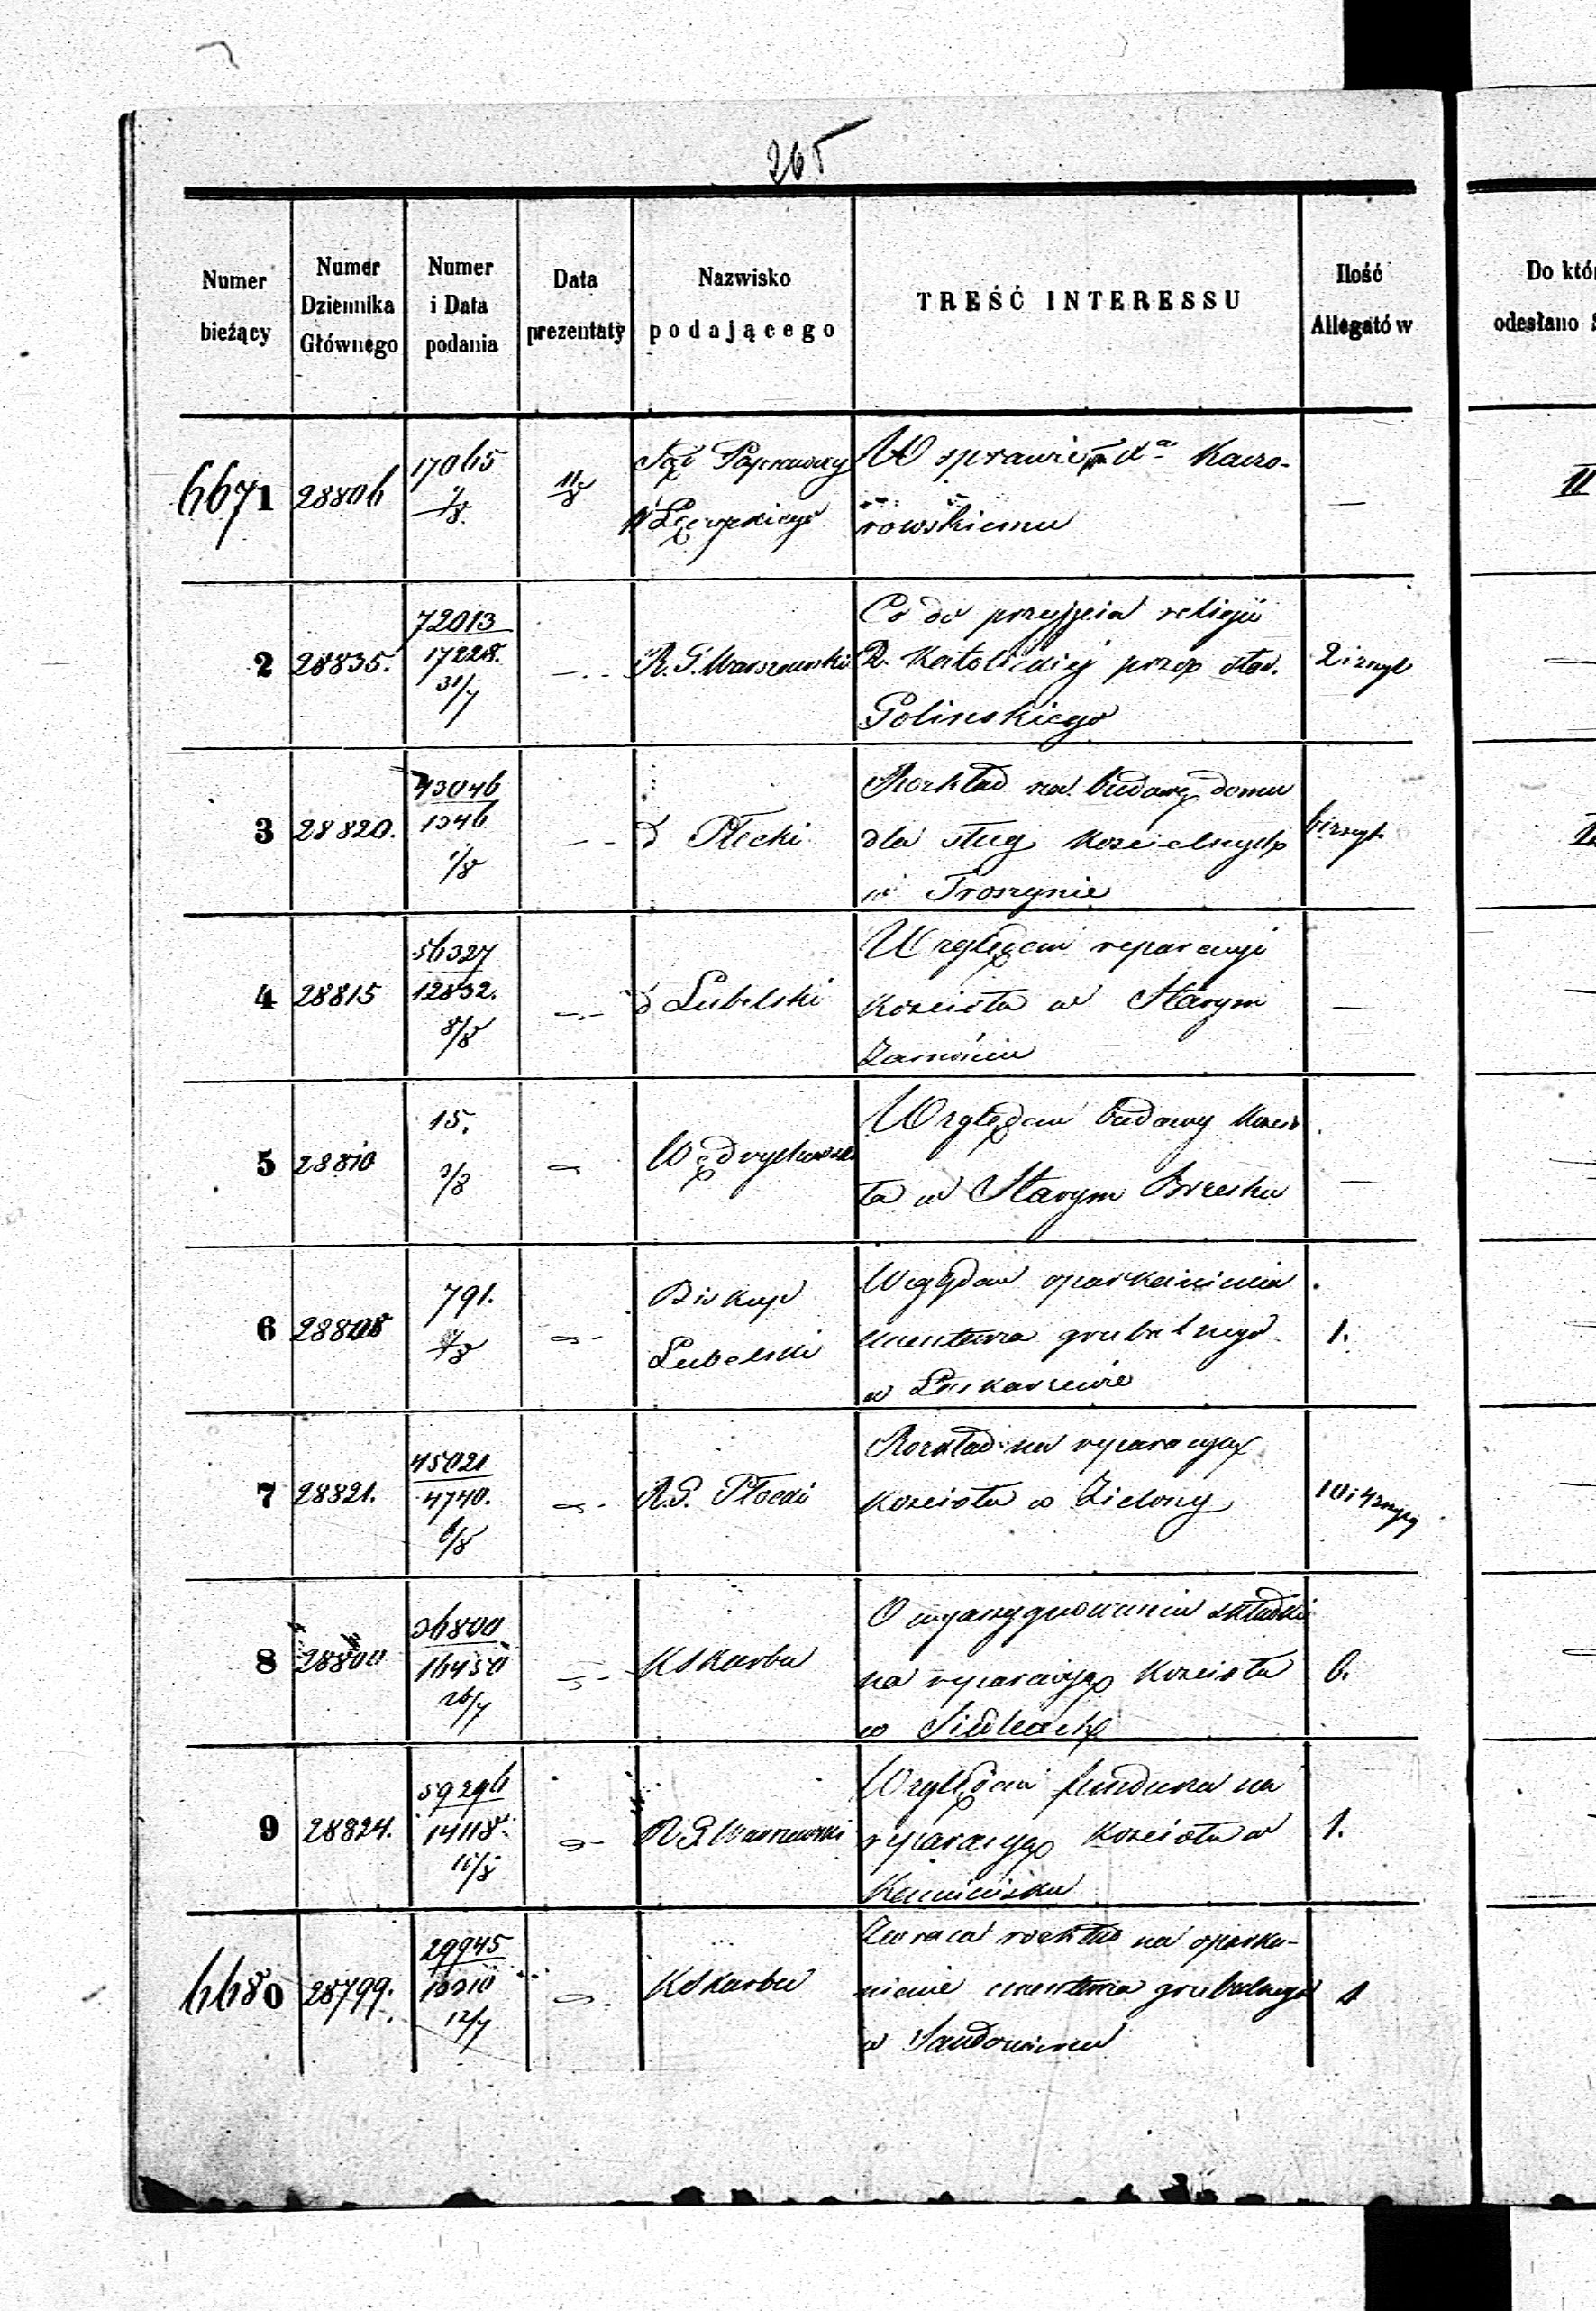 265
Numer bieżący
Numer Dziennika Głównego
Numer i Data podania
Data prezentaty
Nazwisko podającego
TREŚĆ INTERESSU
Ilość Allegatów
Do któ
odesłano S
6671 28806 17065 11/8 Sąd Poprawczy W sprawie Kaczo-
w Łęczyckiego rowskiemu —
II
72013 Co do przyjęcia religii
2 28835. 17228. R. G. Warszawski R. Katolickiej przez 2 i zszyt
31/7 Golinskiego
43046 Rozkład na budowę domu
3 28820. 1346 d Płocki dla sług kościelnych 6 i zszyt
1/8 w Troszynie
56327 Względem reparacyi
4 28815 12832. d Lubelski Kościoła w Starym —
8/8 Zamościu
15. Względem budowy Kościo
5 28810 3/8 ła w Starym Brzesku —
791. Biskup Względem oparkanienia
6 28808 Lubelski cmentarza grzebalnego 1.
w Łaskarzewie
45021 Rozkład na reparacyą
7 28821. 4740. R. G. Płocki Kościoła w Zielony 10 i 4 zszyty
6/8
36800 O wyassygnowanie składki
8 28800 16450 K Skarbu na reparacyą Kościoła 6.
26/7 w Siedlcach
59296 Względem funduszu na
9 28824. 14118. R G Warszawski reparacyą Kościoła w 1.
11/8 Kamieńsku
29945 Zwraca rozkład na oparka-
6680 28799. K Skarbu nienie cmentarza grzebalnego 1
12/7 w Sandomierzu